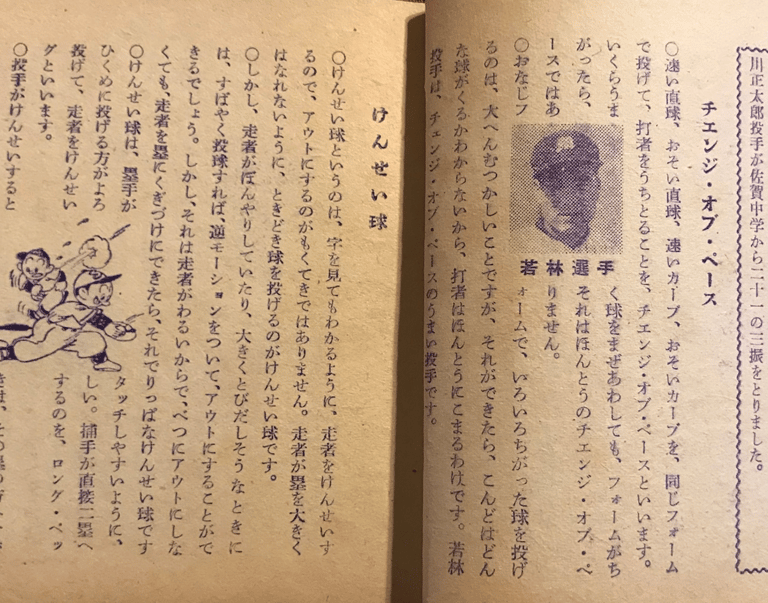 川正太郎投手が佐賀中学から二十一の三振をとりました。
チエンジ・オブ・ペース
○速い直球、おそい直球、速いカーブ、おそいカーブを、同じフォーム
で投げて、打者をうちとることを、チエンジ・オブ・ペースといいます。
いくらうま
く球をまぜあわしても、フォームがち
がったら、
それはほんとうのチエンジ・オブ・ペ
ースではあ
りません。
若林選手
○おなじフ
ォームで、いろいろちがった球を投げ
るのは、大へんむつかしいことですが、それができたら、こんどはどん
な球がくるかわからないから、打者はほんとうにこまるわけです。若林
投手は、チェンジ・オブ・ペースのうまい投手です。
けんせい球
○けんせい球というのは、字を見てもわかるように、走者をけんせいす
るので、アウトにするのがもくてきではありません。走者が塁を大きく
はなれないように、ときどき球を投げるのがけんせい球です。
○しかし、走者がぼんやりしていたり、大きくとびだしそうなときに
は、すばやく投球すれば、逆モーションをついて、アウトにすることがで
きるでしょう。しかし、それは走者がわるいからで、べつにアウトにしな
くても、走者を塁にくぎづけにできたら、それでりっぱなけんせい球です
○けんせい球は、塁手が
タッチしやすいように、
ひくめに投げる方がよろ
しい。捕手が直接二塁へ
投げて、走者をけんせい
するのを、ロング・ペッ
グといいます。
○投手がけんせいすると